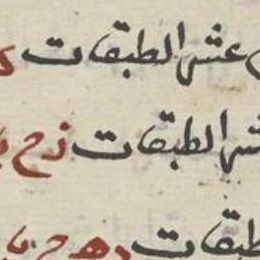 عشر الطبقات
شر الطبقات زح
طبقات د ه ح